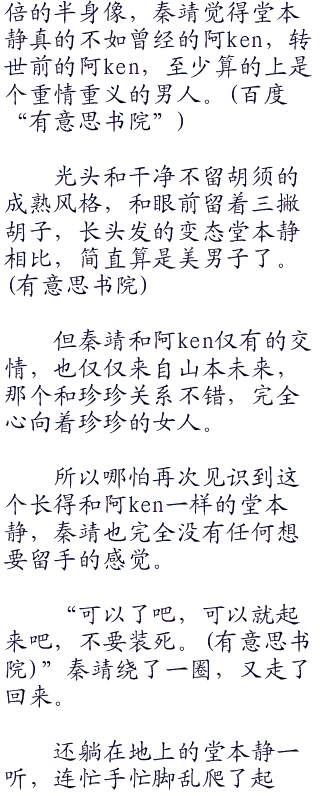 倍的半身像，秦靖觉得堂本
静真的不如曾经的阿ken，转
世前的阿ken，至少算的上是
个重情重义的男人。(百度
“有意思书院”)
光头和干净不留胡须的
成熟风格，和眼前留着三撇
胡子，长头发的变态堂本静
相比，简直算是美男子了。
(有意思书院)
但秦靖和阿ken仅有的交
情，也仅仅来自山本未来，
那个和珍珍关系不错，完全
心向着珍珍的女人。
所以哪怕再次见识到这
个长得和阿ken一样的堂本
静，秦靖也完全没有任何想
要留手的感觉。
“可以了吧，可以就起
来吧，不要装死。(有意思书
院)”秦靖绕了一圈，又走了
回来。
还躺在地上的堂本静一
听，连忙手忙脚乱爬了起